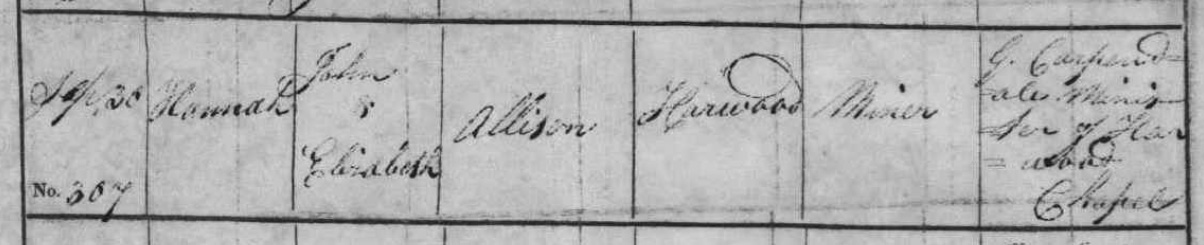 Sep 30
No. 307
Hannah
John
&
Elizabeth
Allison
Harwood
Miner
G. Carpend-
-ale Minis-
-ter of Har
-wood
Chapel